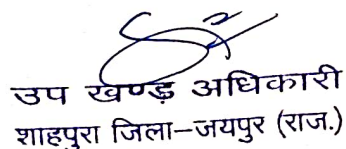 उप खण्ड़ अधिकारी
शाहपुरा जिला–जयपुर (राज.)